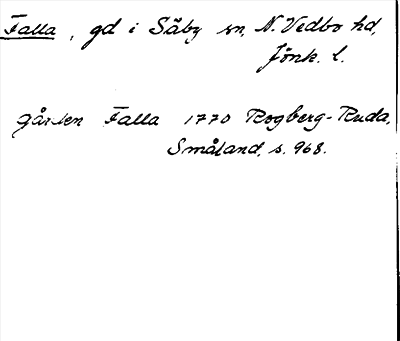 Falla, gd i Säby sn, N. Vedbo hd,
Jönk. l.
gården Falla 1770 Rogberg-Ruda,
Småland, s. 968.